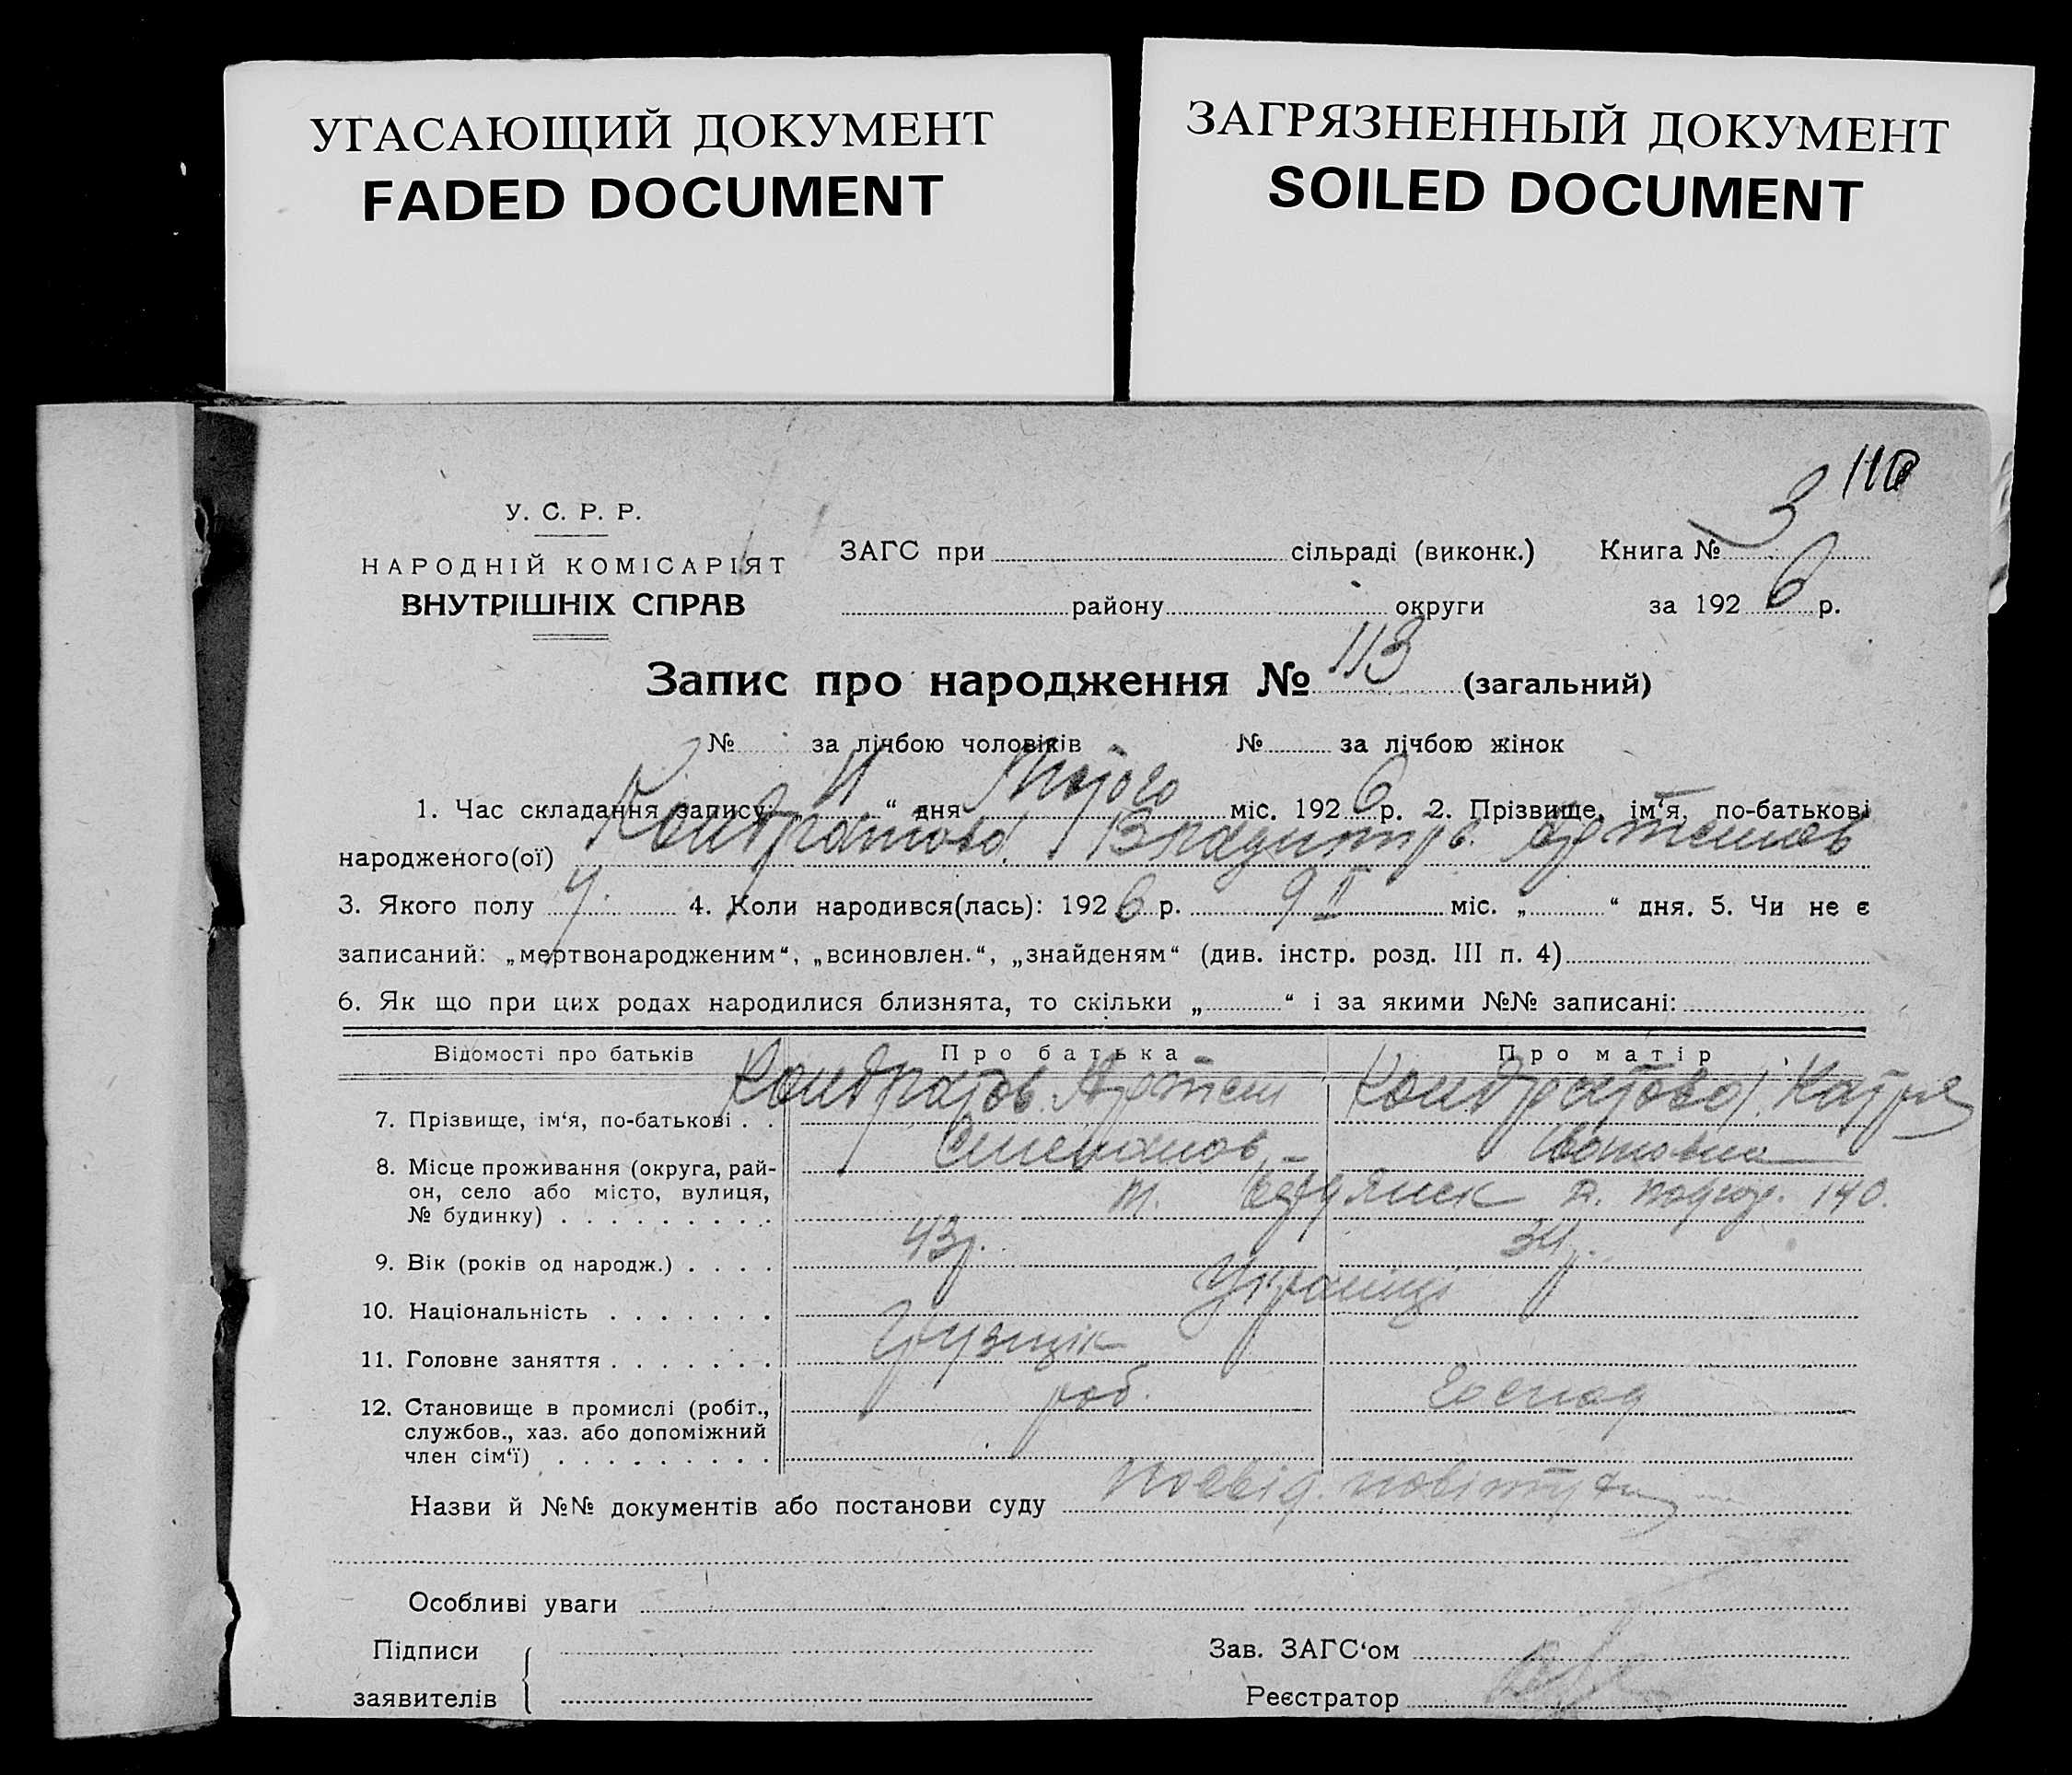 УГАСАЮЩИЙ ДОКУМЕНТ
FADED DOCUMENT
ЗАГРЯЗНЕННЫЙ ДОКУМЕНТ
SOILED DOCUMENT
У. С. Р. Р.
НАРОДНІЙ КОМІСАРІЯТ
ВНУТРІШНІХ СПРАВ
ЗАГС при сільраді (виконк.) Книга № 3
району округи за 1926 р.
Запис про народження № 113 (загальний)
№ за лічбою чоловіків № за лічбою жінок
1. Час складання запису: 11 “ дня Лютого міс. 1926 р. 2. Прізвище, ім‘я, по-батькові
народженого(ої) Кондратов
3. Якого полу ч. 4. Коли народився(лась): 1926 р. 9 II міс. „ “ дня. 5. Чи не є
записаний: „мертвонародженим“, „всиновлен.“, „знайденям“ (див. інстр. розд. III п. 4)
6. Як що при цих родах народилися близнята, то скільки „ “ і за якими №№ записані:
Відомості про батьків Про батька Про матір
7. Прізвище, ім‘я, по-батькові . . Кондратов Артем Кондратова Катря
Степанов
8. Місце проживання (округа, рай-
он, село або місто, вулиця,
№ будинку) . . . . . . . . . . м. 140.
9. Вік (років од народж.) . . . . 43 р. 34 р.
10. Національність . . . . . . . Українці
11. Головне заняття . . . . . . . Грузщік
12. Становище в промислі (робіт.,
службов., хаз. або допоміжний
член сім‘ї) . . . . . . . . . . роб. господ
Назви й №№ документів або постанови суду посвід.
Особливі уваги
Підписи
заявителів
Зав. ЗАГС‘ом
Реєстратор